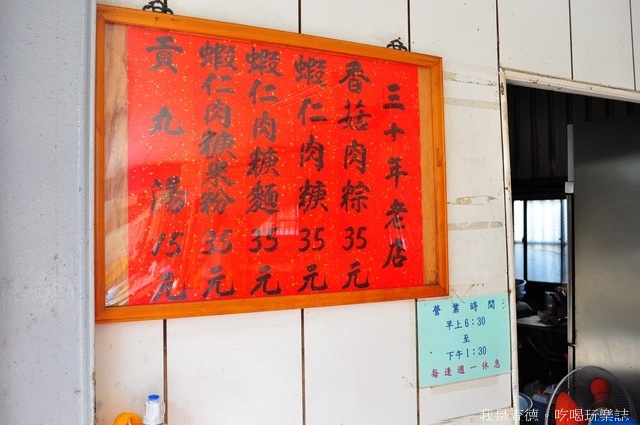 三十年老店
香菇肉粽35元
蝦仁肉焿35元
蝦仁肉焿麵35元
蝦仁肉焿米粉35元
貢丸湯15元
營業時間
早上6:30
至
下午1:30
每逢週一休息
我是香德。吃喝玩樂誌